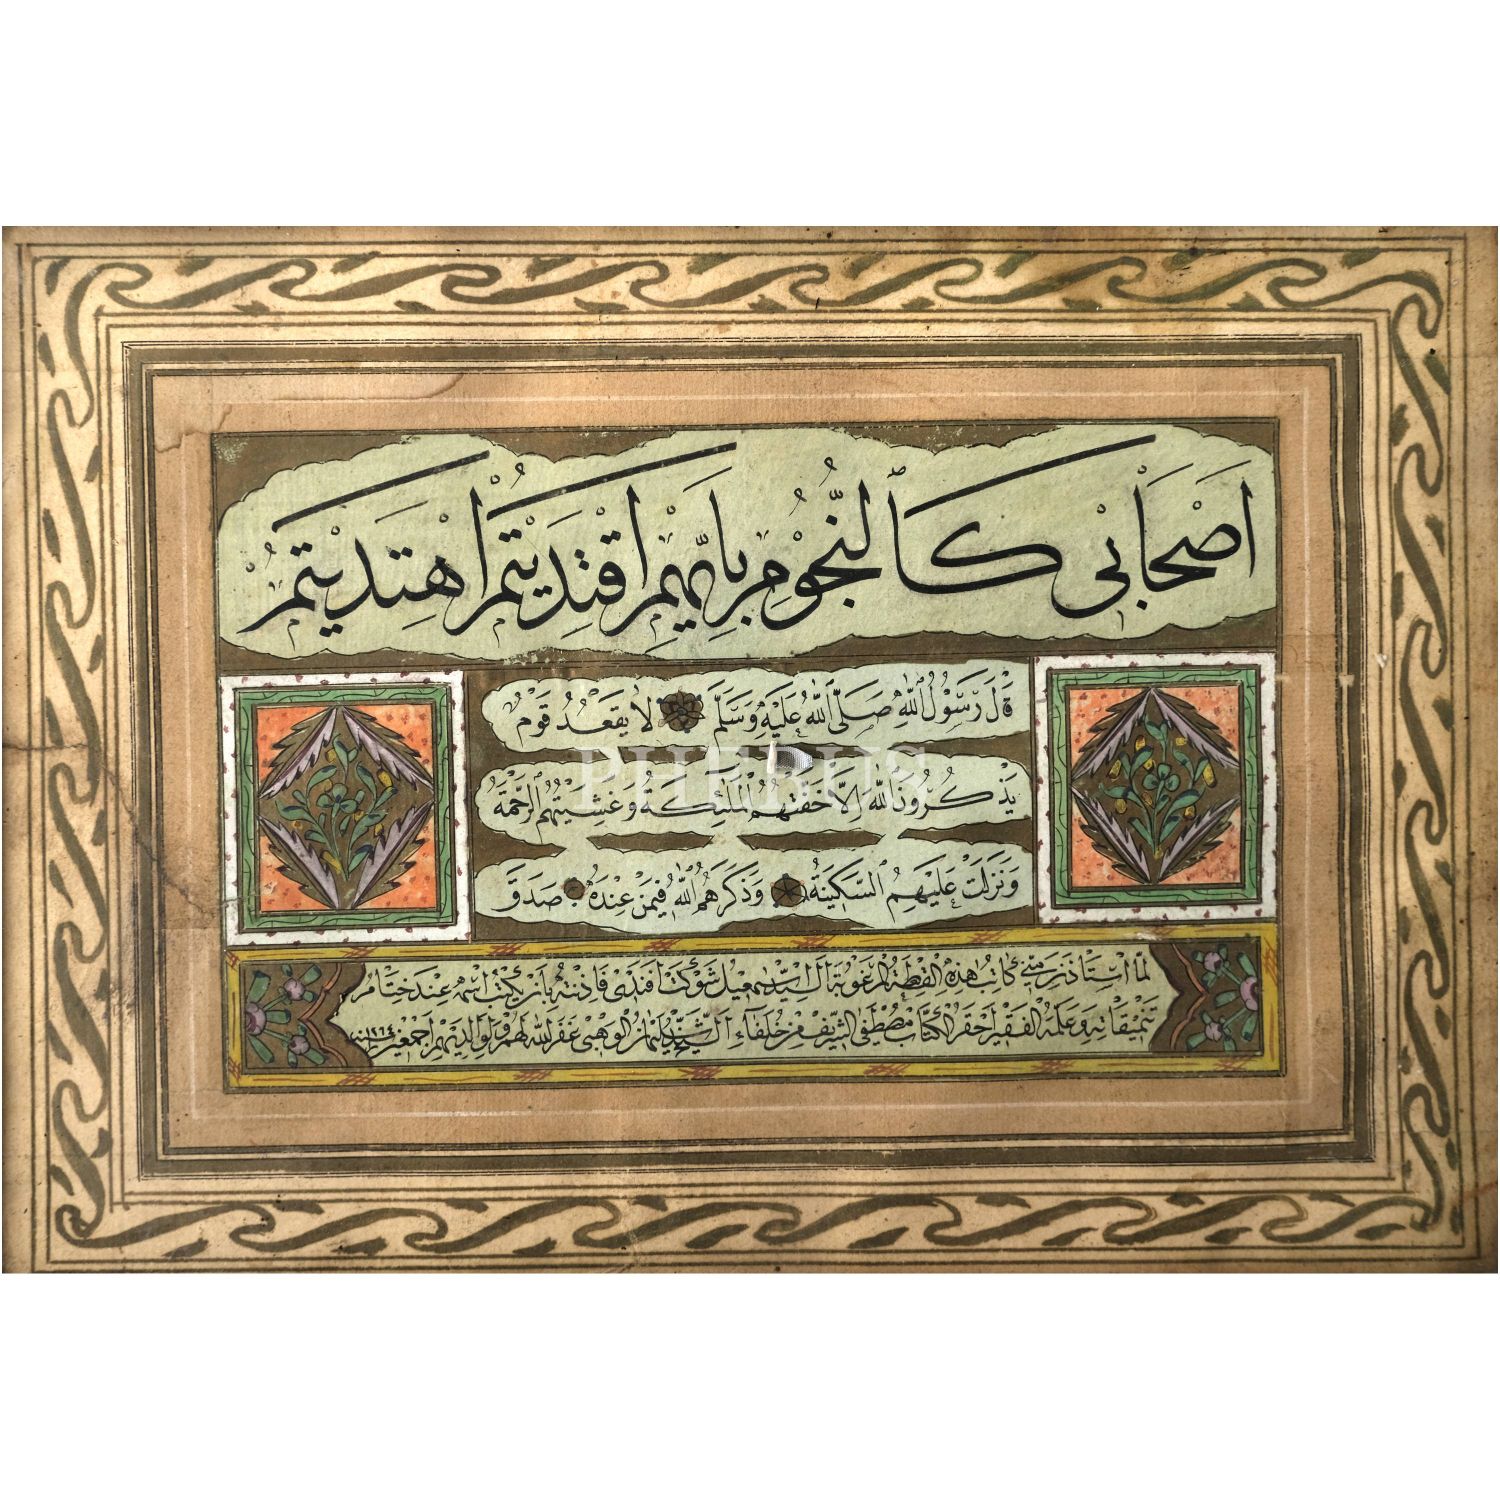 اَصْحَابِيْ كَالنُّجُوْمِ بِاَيِّهِمِ اقْتَدَيْتُمُ اهْتَدَيْتُمْ
قَالَ رَسُوْلُ اللّٰهِ صَلَّى اللّٰهُ عَلَيْهِ وَسَلَّمَ لَا يَقْعُدُ قَوْمٌ
يَذْكُرُوْنَ اللّٰهَ اِلَّا حَفَّتْهُمُ الْمَلٰئِكَةُ وَغَشِيَتْهُمُ الرَّحْمَةُ
PHEBUS
وَنَزَلَتْ عَلَيْهِمُ السَّكِيْنَةُ وَذَكَرَهُمُ اللّٰهُ فِيْمَنْ عِنْدَهُ صَدَقَ
لما استاذن منى كاتب هذه القطعة المرغوبة السيد اسمعيل شوكت افندى فاذنته بان يكتب اسمه عند ختام
تنميقاته وعلمه الفقير احقر الكتاب مصطفى الشريف من خلفاء الوهبى غفر الله لهم ولوالديهم اجمعين